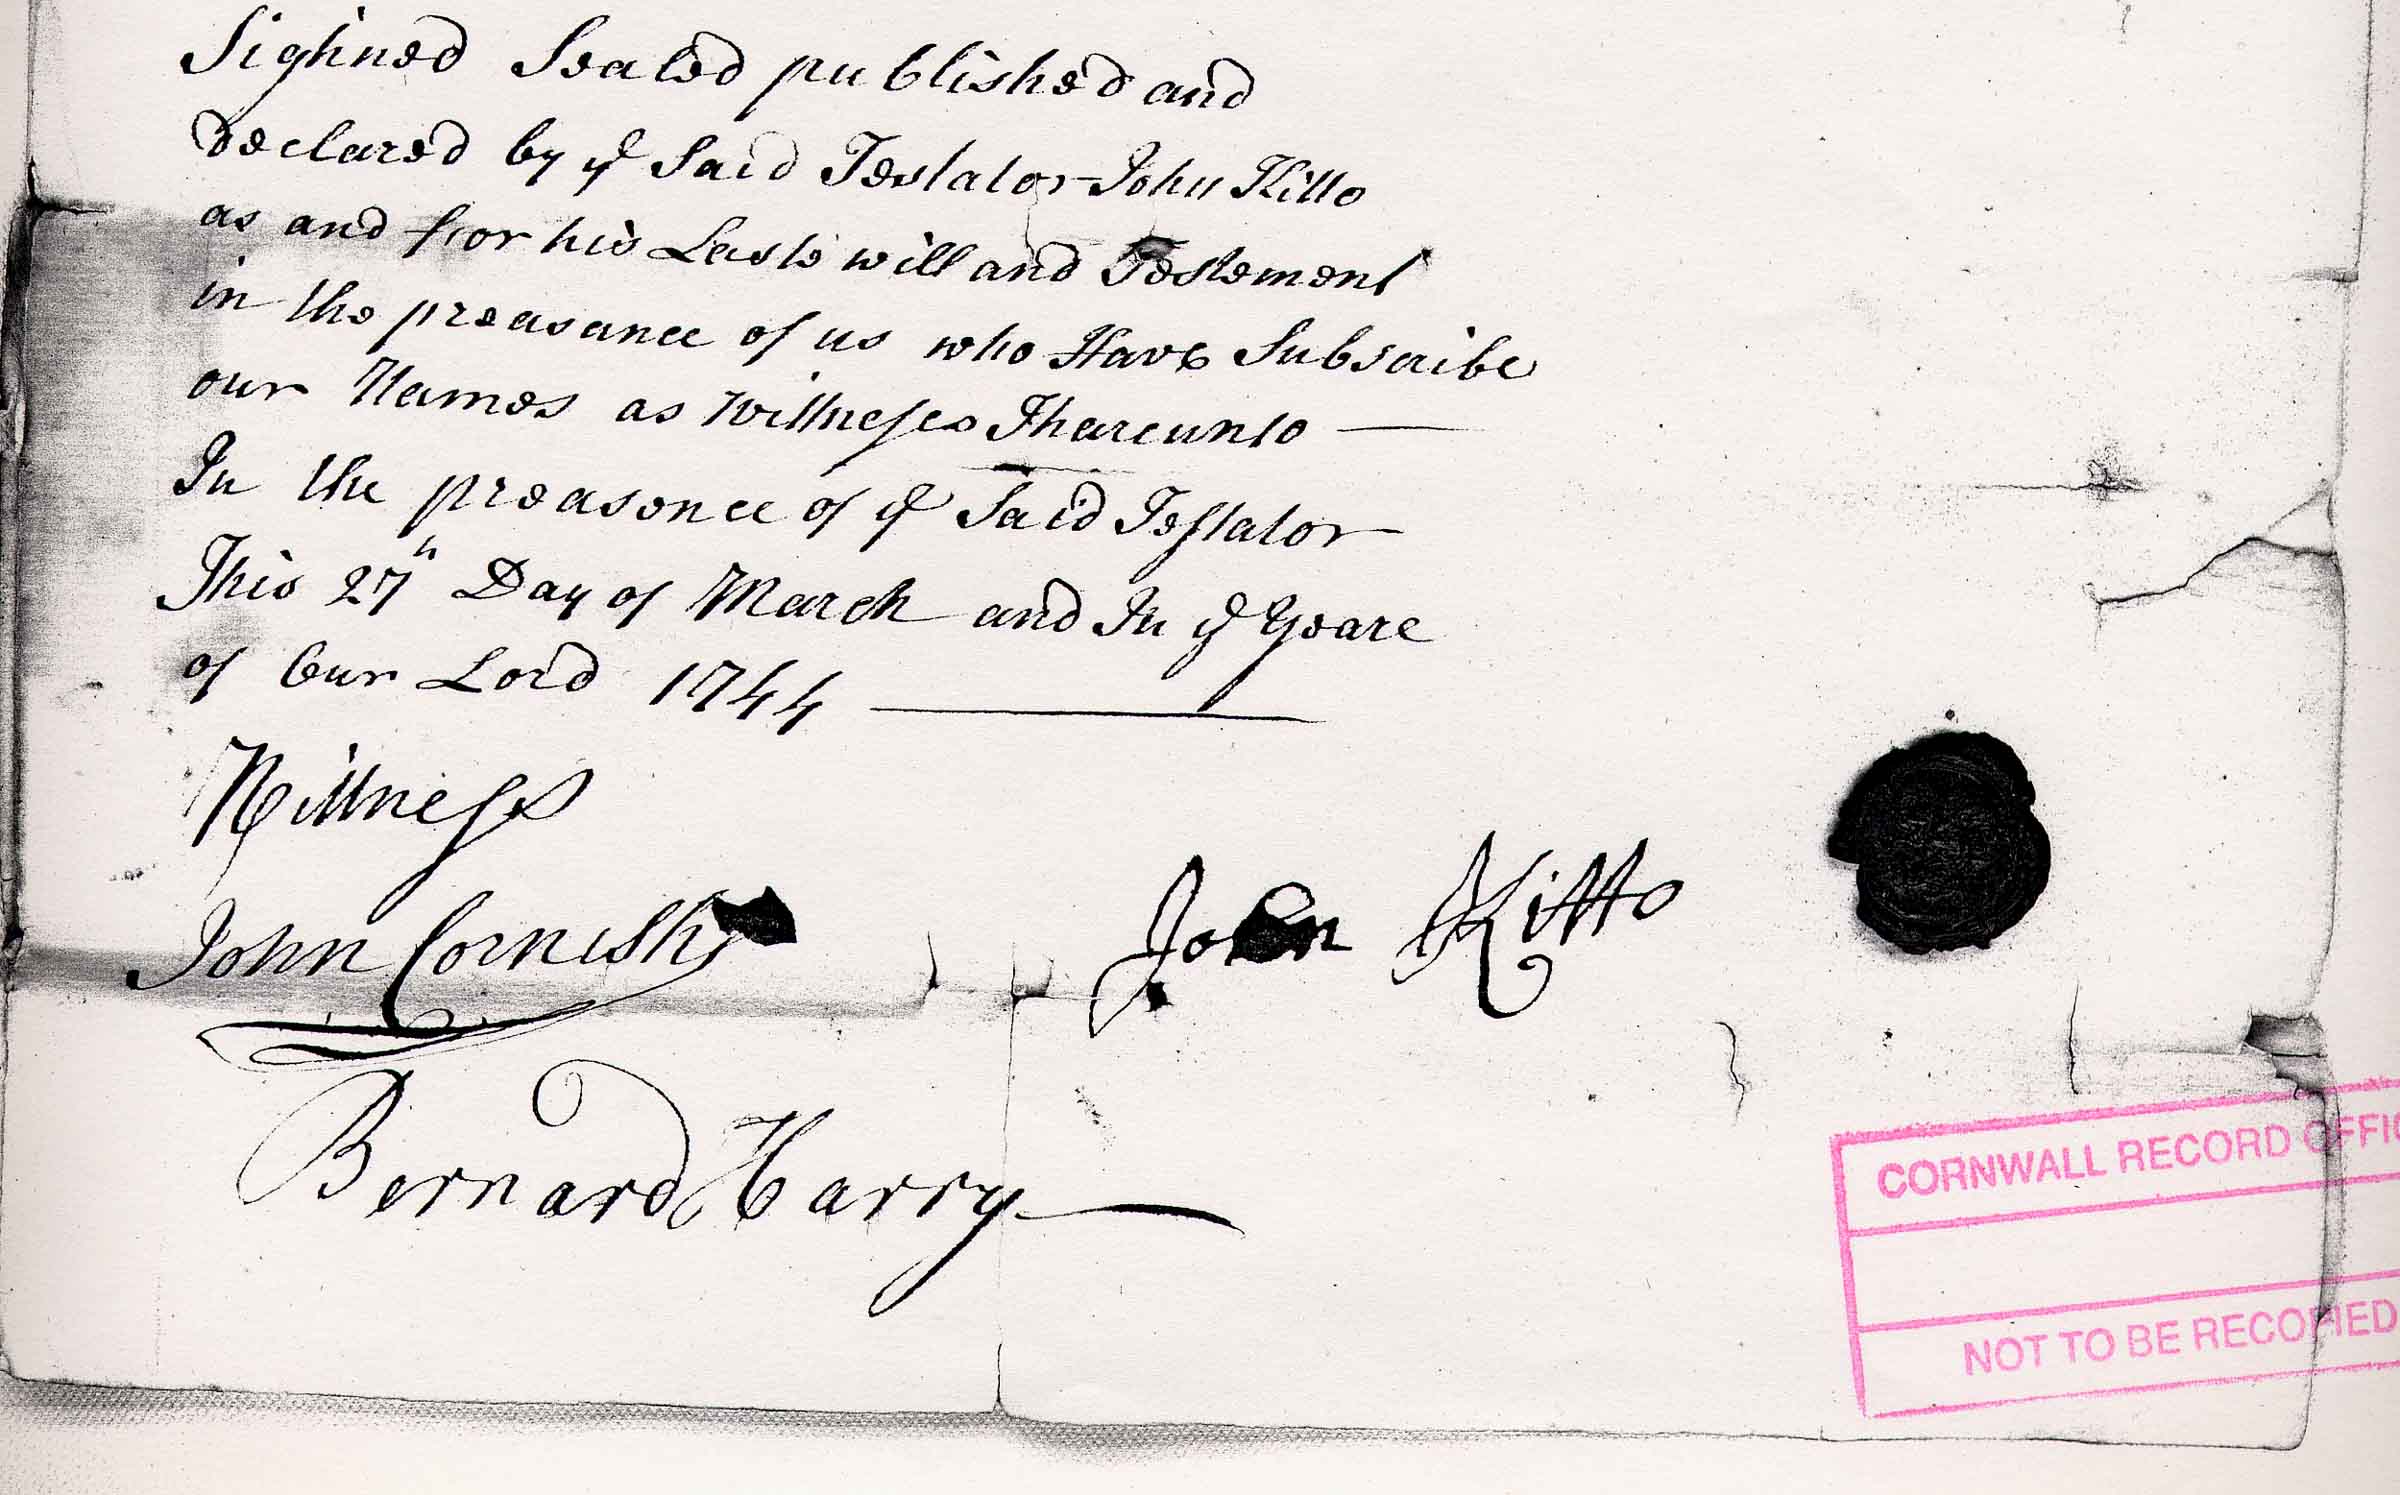 Sighned Sealed published and
declared by ye Said Testator John Kitto
as and for his Laste will and Testement
in the preasance of us who Have Subscribe
our Names as Wittneses Thareunto
In the preasence of ye Said Testator
This 27th Day of March and In ye Yeare
of Our Lord 1744
Wittness
John Cornish
John Kitto
Bernard Harry
CORNWALL RECORD OFFIC
NOT TO BE RECOPIED